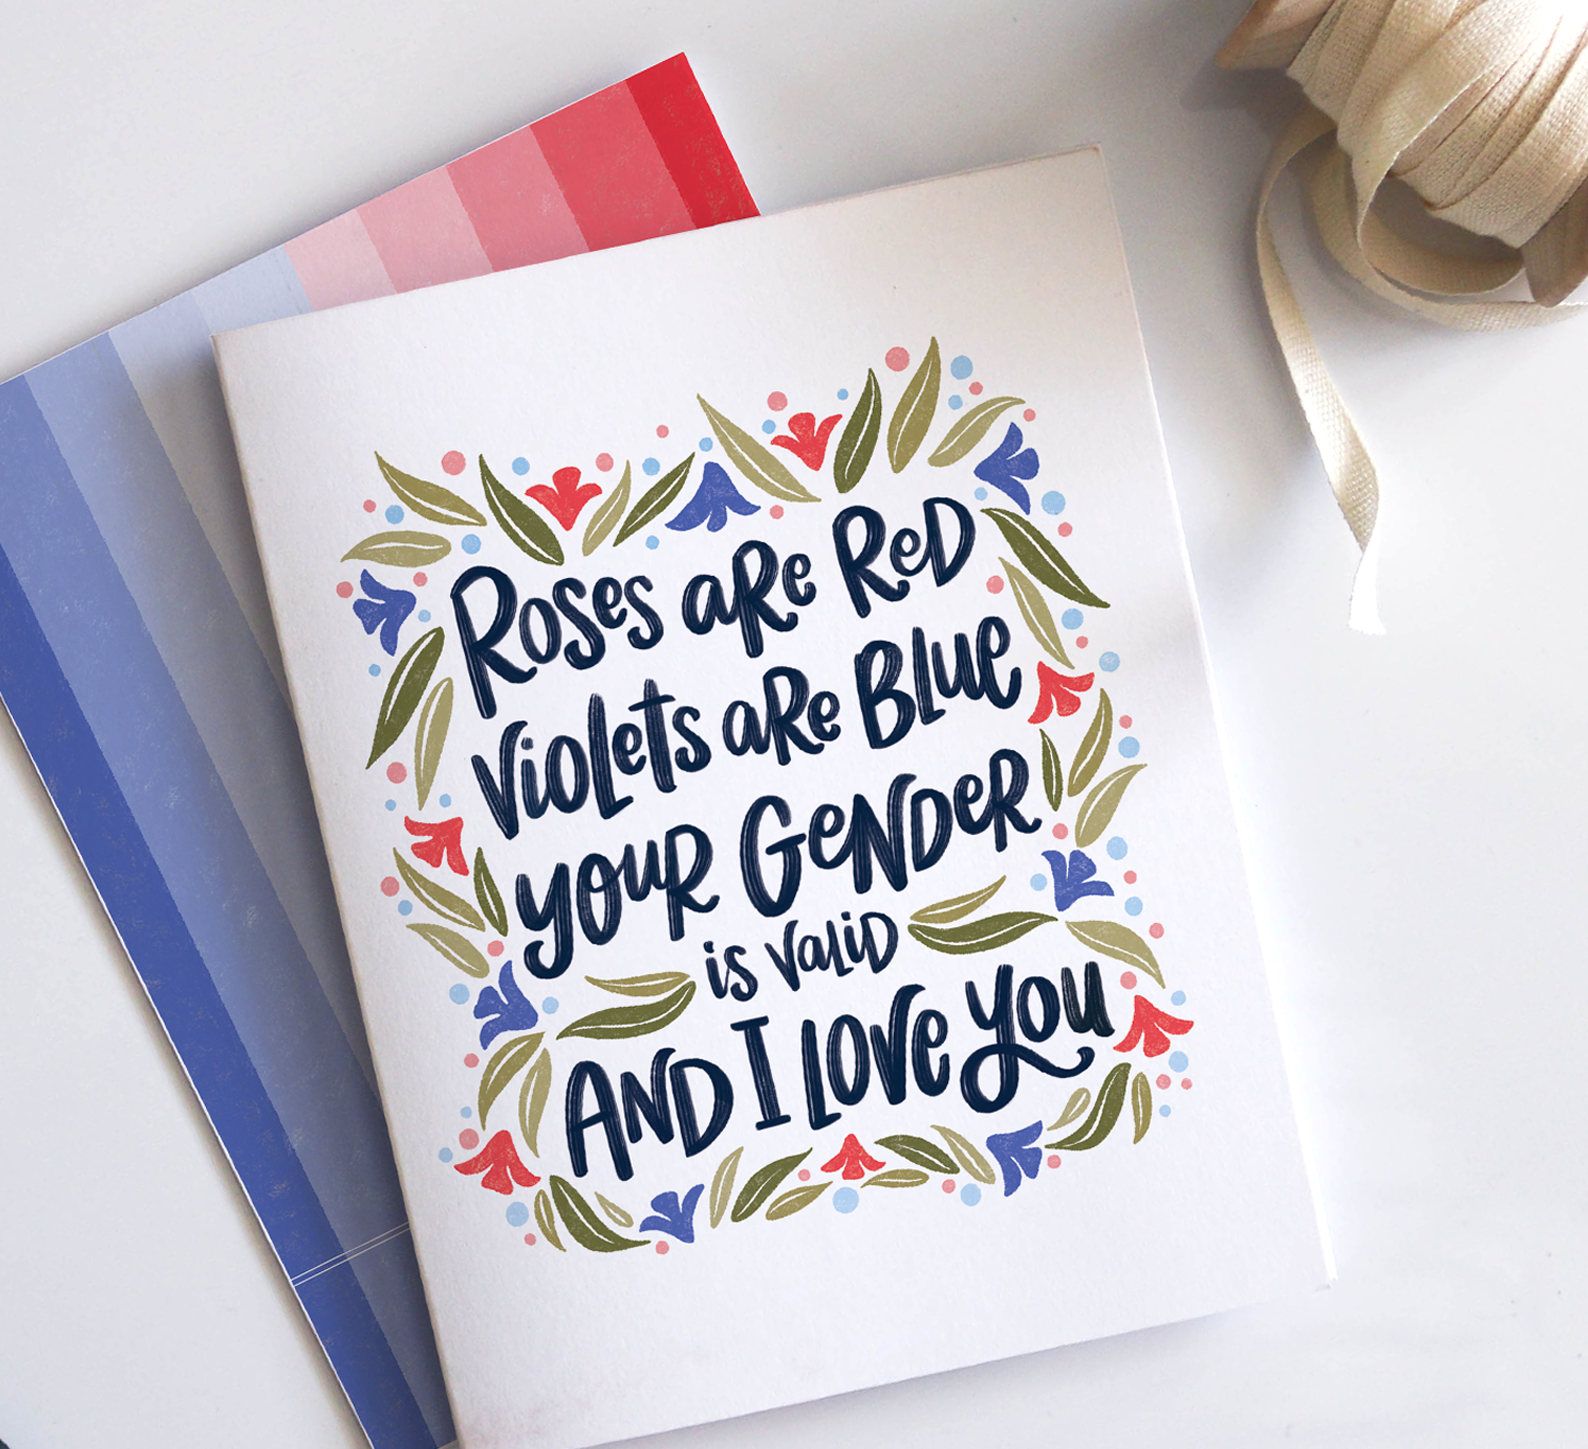 Roses are Red
Violets are Blue
your Gender
is valid
And I love you